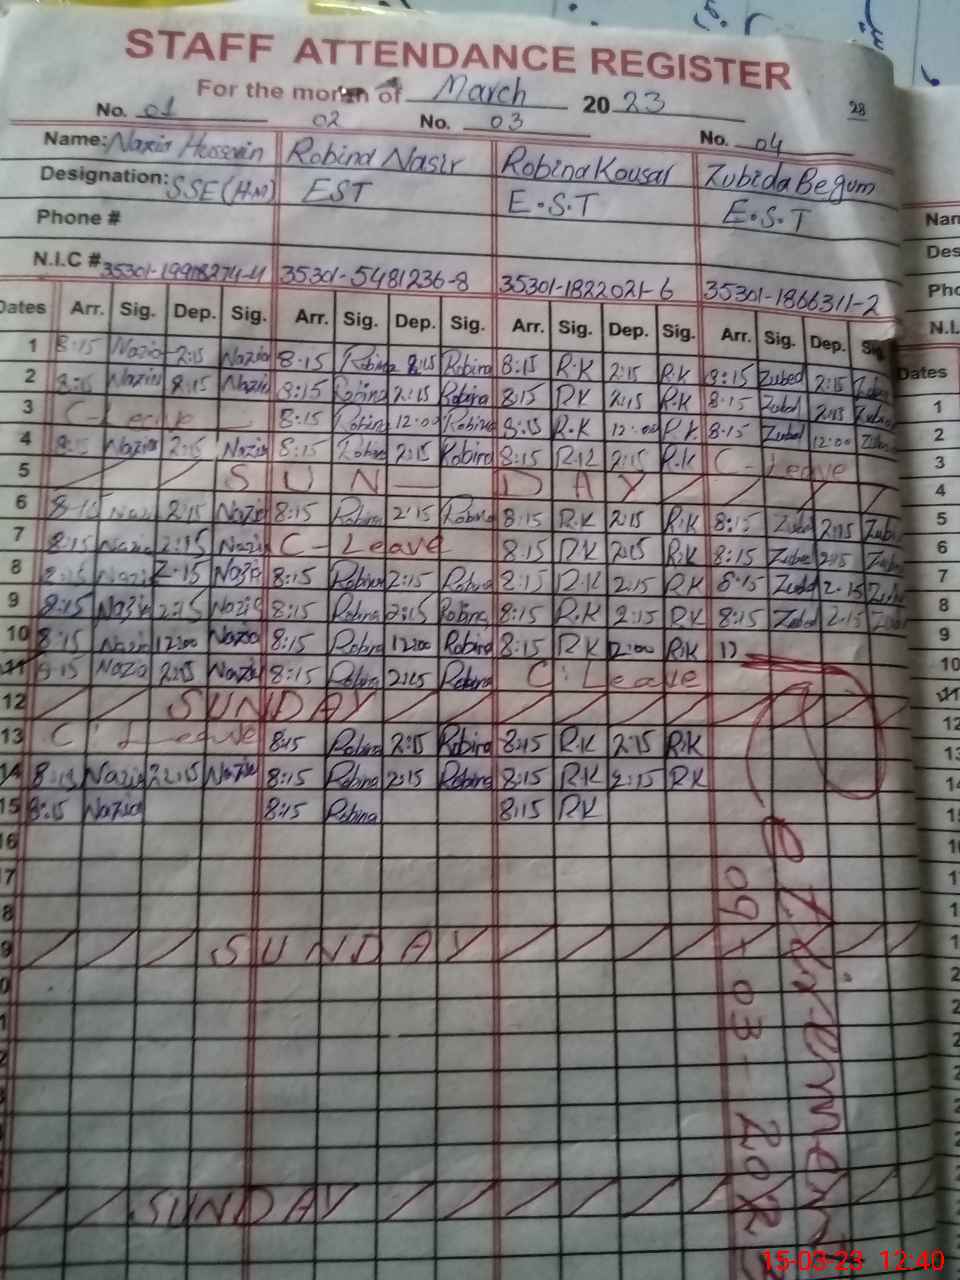 STAFF ATTENDANCE REGISTER
For the month of March 2023
28
No. 01 02 No. 03 No. 04
Name: Robina Nasir Robina Kousar Zubida Begum
Designation: SSE (HM) EST E.S.T E.S.T
Phone #
N.I.C # 35301-5481236-8 35301-1822021-6 35301-1866311-2
Dates Arr. Sig. Dep. Sig. Arr. Sig. Dep. Sig. Arr. Sig. Dep. Sig. Arr. Sig. Dep. Sig.
1 8:15 Nazia 2:15 Nazia 8:15 Robina 2:15 Robina 8:15 R.K 2:15 R.K 8:15 Zubed 2:15
2 8:15 Nazia 8:15 Nazia 8:15 Robina 2:15 Robina 8:15 RK 2:15 R.K 8:15 Zubed 2:15
3 C-Leave 8:15 Robina 12:00 Robina 8:15 R.K 12:00 R.K 8:15 Zubed 12:00
4 8:15 Nazia 2:15 Nazia 8:15 Robina 2:15 Robina 8:15 R.K 2:15 R.K C-Leave
5 SUN-DAY
6 8:15 Nazia 2:15 Nazia 8:15 Robina 2:15 Robina 8:15 R.K 2:15 R.K 8:15 Zubed 2:15
7 8:15 Nazia 2:15 Nazia C-Leave 8:15 RK 2:15 R.K 8:15 Zubed 2:15
8 8:15 Nazia 2:15 Nazia 8:15 Robina 2:15 Robina 8:15 R.K 2:15 RK 8:15 Zubed 2:15
9 8:15 Nazia 2:15 Nazia 8:15 Robina 2:15 Robina 8:15 R.K 2:15 RK 8:15 Zubed 2:15
10 8:15 Nazia 12:00 Nazia 8:15 Robina 12:00 Robina 8:15 RK 12:00 R.K
11 8:15 Nazia 2:15 Nazia 8:15 Robina 2:15 Robina C.Leave
12 SUNDAY
13 C.Leave 8:15 Robina 2:15 Robina 8:15 R.K 2:15 R.K
14 8:15 Nazia 2:15 Nazia 8:15 Robina 2:15 Robina 8:15 RK 2:15 RK
15 8:15 Nazia 8:15 Robina 8:15 RK
16
17
18
19 SUNDAY
SUNDAY
Retirement
09-03-2023
Nar
Des
Pho
N.I.
Dates
1
2
3
4
5
6
7
8
9
10
11
12
13
14
15-03-23 12:40